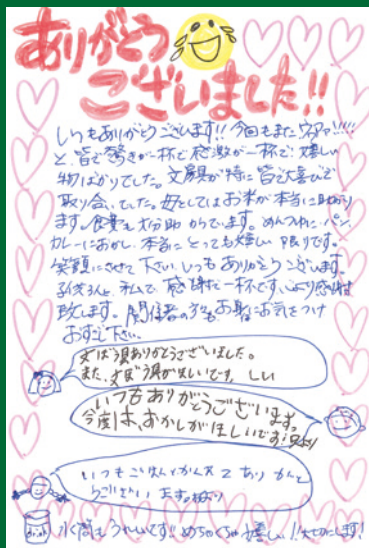 ありがとう
ございました!!
いつもありがとうございます!! 今回もまたウァァ!!!!!
と、皆で驚きが一杯で感激が一杯で!嬉しい
物ばかりでした。文房具が特に皆大喜びで
取り合いでした。母としてはお米が本当に助かり
ます。食費も大分助かっています。めんつゆに、パン、
カレーにおかし、本当にとっても嬉しい限りです。
笑顔にさせて下さい、いつもありがとうございます。
子供3人と、私で、感謝で一杯です。心より感謝
致します。関係者の方も、お身体にお気をつけ
おすごし下さい。
文ぼう具ありがとうございました。
また、文ぼう具がほしいです。
いつもありがとうございます。
今度は、おかしがほしいです!
いつもごはんとかんズとありがと
うございます。
水筒もうれしいです!! めちゃくちゃ嬉しい!!大切にします!